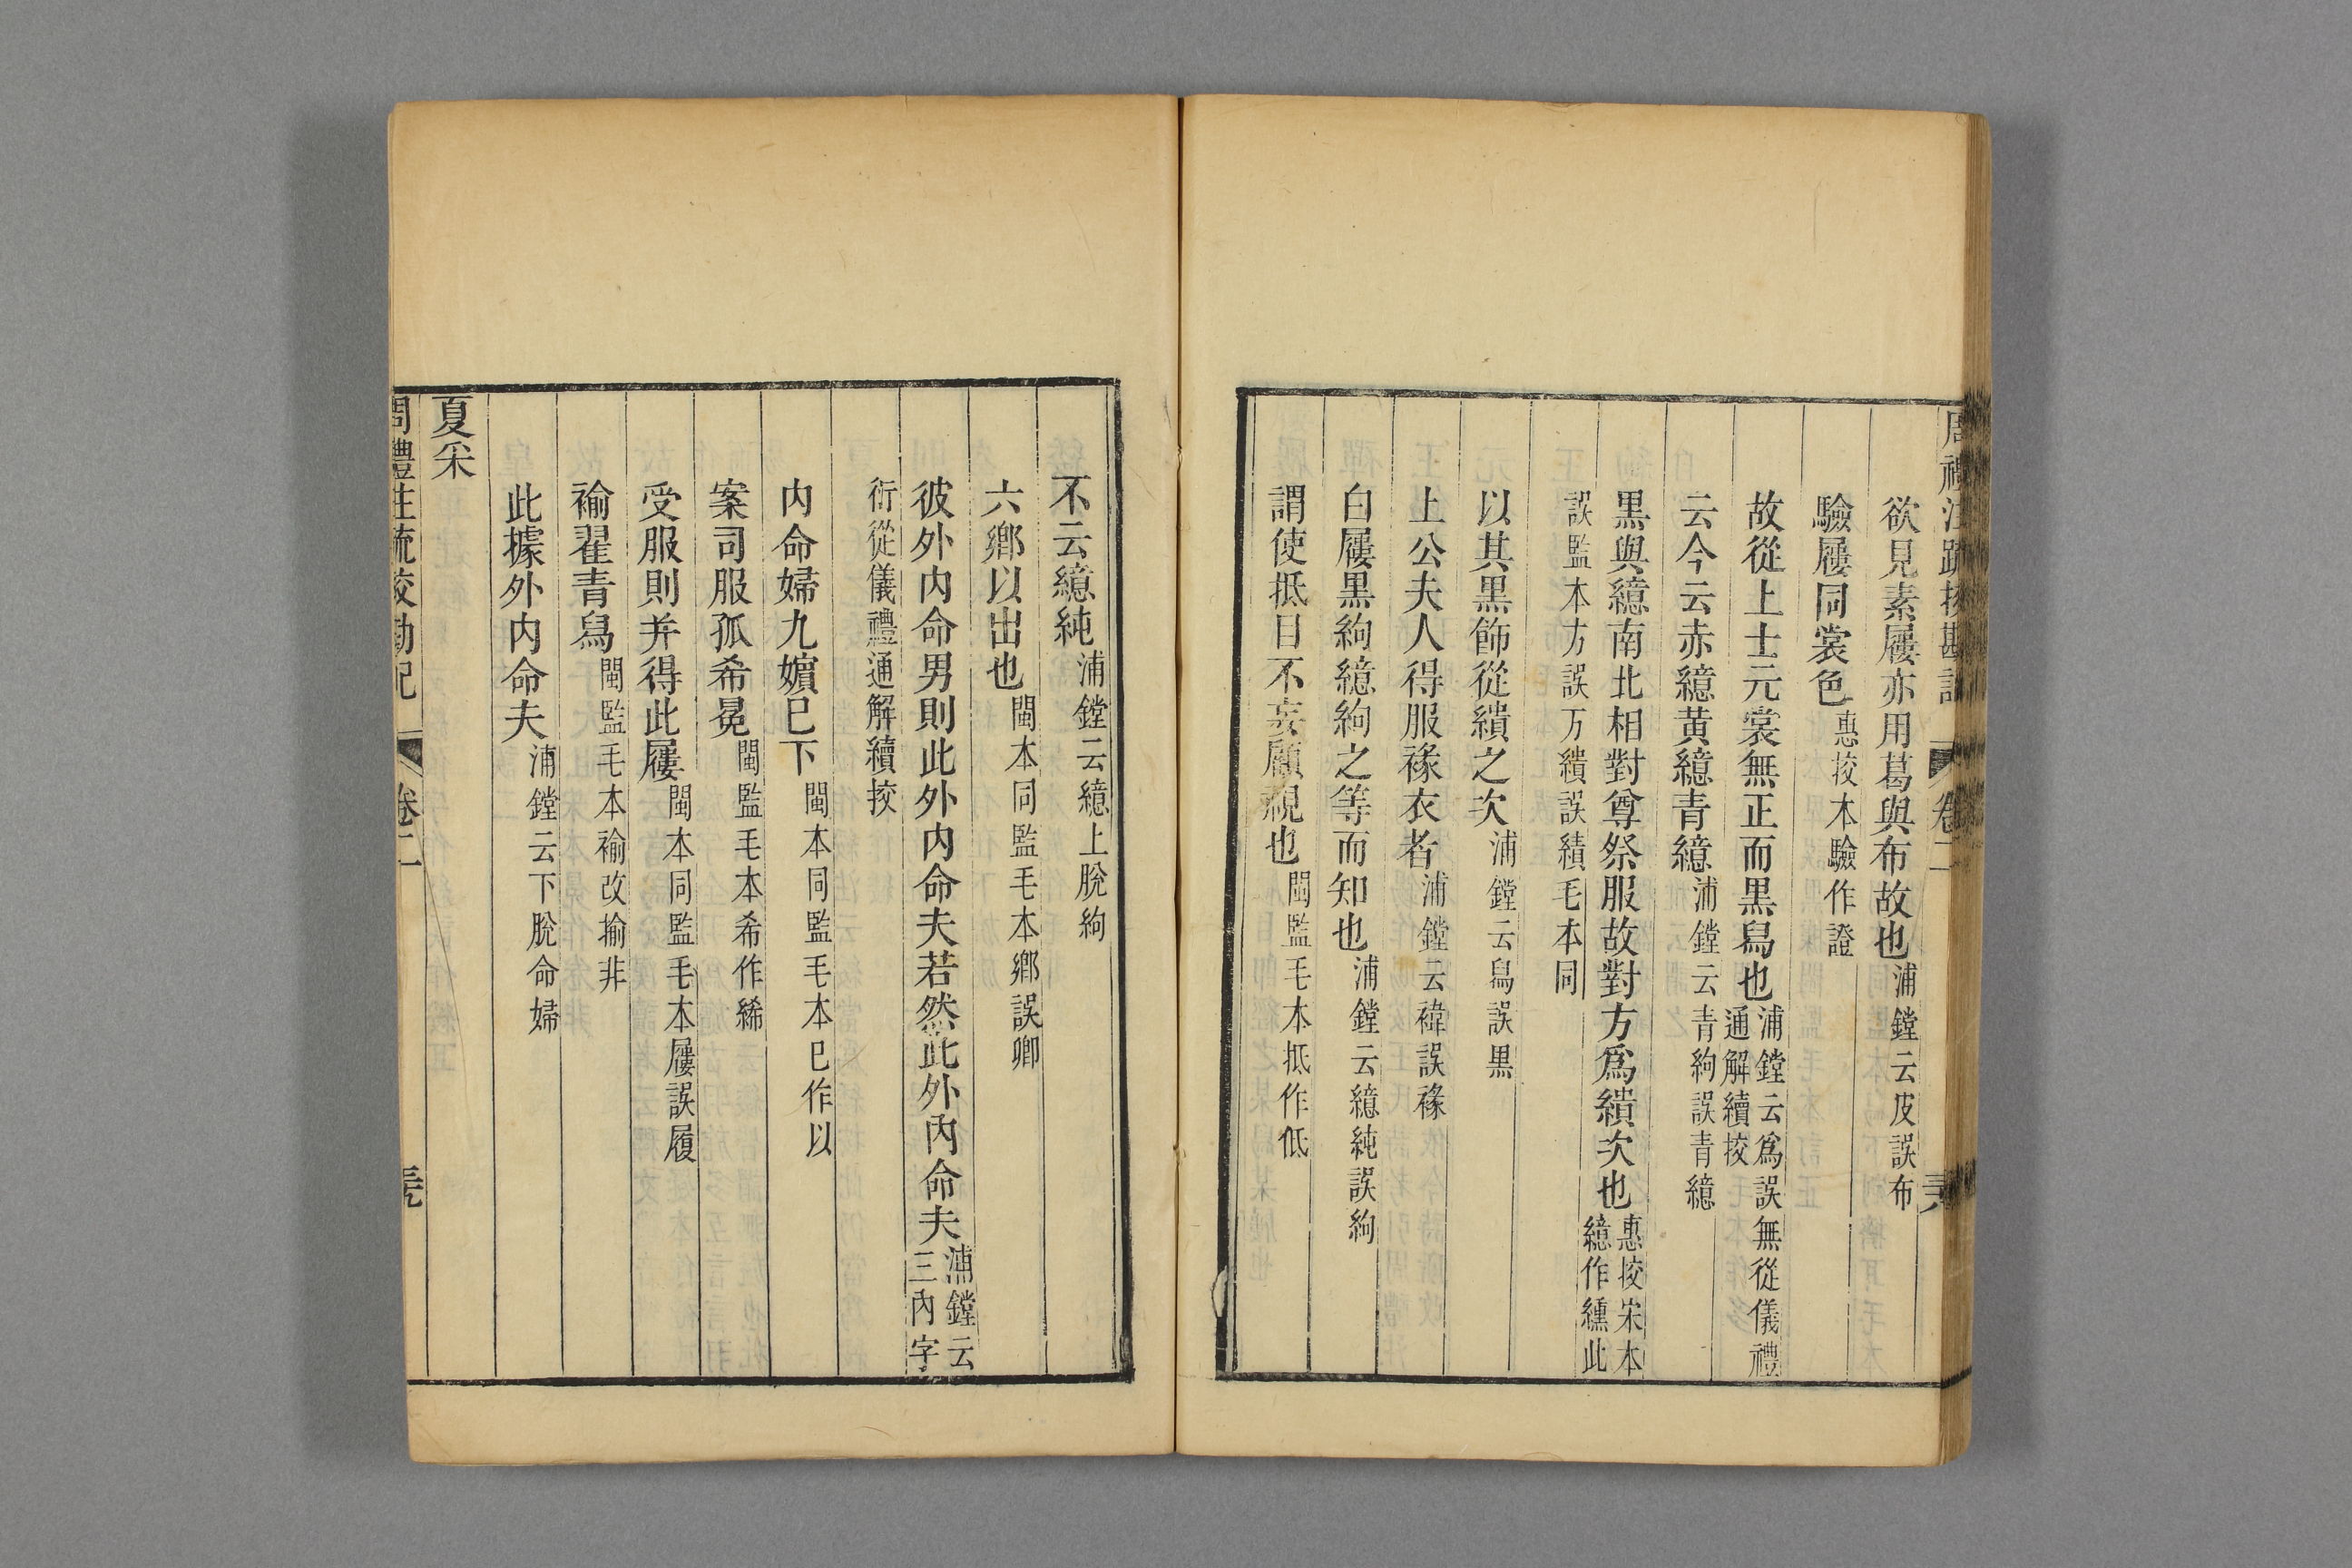 周禮注疏挍勘記 卷二
欲見素屨亦用葛與布故也浦鏜云皮誤布
驗屨同裳色惠挍本驗作證
故從上士元裳無正而黒舄也浦鏜云爲誤無從儀禮通解續挍
云今云赤繶黄繶青繶浦鏜云青絇誤青繶
黒與繶南北相對尊祭服故對方爲繢次也惠挍宋本繶作纁此
誤監本方誤万繢誤績毛本同
以其黒飾從繢之次浦鏜云舄誤黒
上公夫人得服褖衣者浦鏜云褘誤褖
白屨黒絇繶絇之等而知也浦鏜云繶純誤絇
謂使抵目不妄顧視也閩監毛本抵作低
不云繶純浦鏜云繶上脫絇
六鄉以出也閩本同監毛本鄉誤卿
彼外内命男則此外内命夫若然此外內命夫浦鏜云三內字
衍從儀禮通解續挍
内命婦九嬪已下閩本同監毛本已作以
案司服孤希冕閩監毛本希作絺
受服則并得此屨閩本同監毛本屨誤履
褕翟青舄閩監毛本褕改揄非
此據外内命夫浦鏜云下脫命婦
夏采
周禮注疏挍勘記 卷二